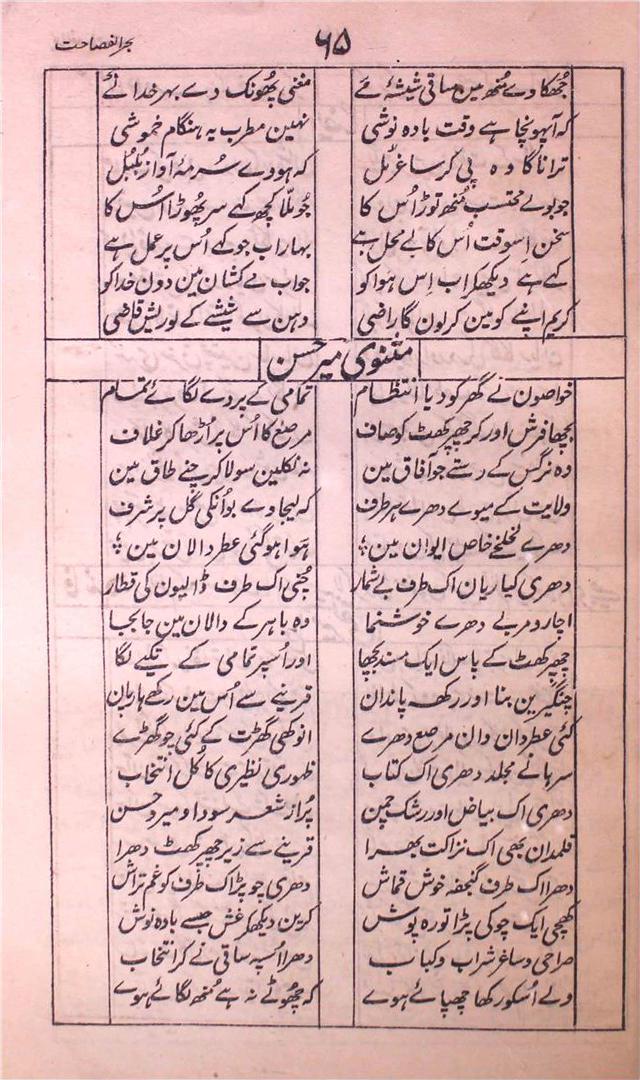 بحرالفصاحت
۶۵
جُھکا دے مُنھ مین ساقی شیشۂ مے مغنی پُھونک دے بہر خدا نَے
کہ آپہونچا ہے وقت بادہ نوشی نہین مطرب یہ ہنگام خموشی
ترانا گا وہ پی کر ساغر مُل کہ ہووے سُرمۂ آواز بُلبُل
جو بولے محتسب مُنھ توڑ اُس کا جو ملّا کچھ کہے سر پھوڑ اُس کا
سخن اِسوقت اُس کا بے محل ہے بہار اب جو کہے اُس پر عمل ہے
کہے ہے دیکھکر اب اِس ہوا کو جواب مے کشان مین دون خدا کو
کریم اپنے کو مین کر لون گا راضی دہن سے شیشے کے لو ریش قاضی
مثنوی میر حسن
خواصون نے گھر کو دیا انتظام تمامی کے پردے لگائے تمام
بچھا فرش اور کر چھپر کھٹ کو صاف مرصع کا اُس پر اُڑھا کر غلاف
وہ نرگس کے دستے جو آفاق مین نہ نکلین سو لا کر چنے طاق مین
ولایت کے میوے دھرے ہر طرف کہ لیجاوے بو اُنکی گل پر شرف
دھرے لخلخے خاص ایوان مین؛ ہوا ہو گئی عطر دالان مین؛
دھری کیاریان اک طرف بے شمار چُنی اک طرف ڈالیون کی قطار
اچار و مربے دھرے خوشنما وہ باہر کے دالان مین جابجا
چھپر کھٹ کے پاس ایک مسند بچھا اور اُسپر تمامی کے تکیے لگا
چنگیرین بنا اور رکھہ پاندان قرینے سے اُس مین رکھے ہار پان
کئی عطردان دان مرصع دھرے انوکھی گھڑت کے کئی چوگھڑے
سرہانے مجلد دھری اک کتاب ظہوری نظیری کا کُل انتخاب
دھری اک بیاض اور رشک چمن پُر از شعر سودا و میر و حسن
قلمدان بھی اک نزاکت بھرا قرینے سے زیر چھپر کھٹ دھرا
دھرا اک طرف گنجفہ خوش قماش دھری چوپڑ اک طرف کو غم تراش
کھچی ایک چوکی پڑا تورہ پوش کرین دیکھکر غش جسے بادہ نوش
صراحی و ساغر شراب و کباب دھرا اُسپہ ساقی نے کر انتخاب
ولے اُسکو رکھا چھپائے ہوے کہ چھوٹے نہ ہے مُنھ لگائے ہوے